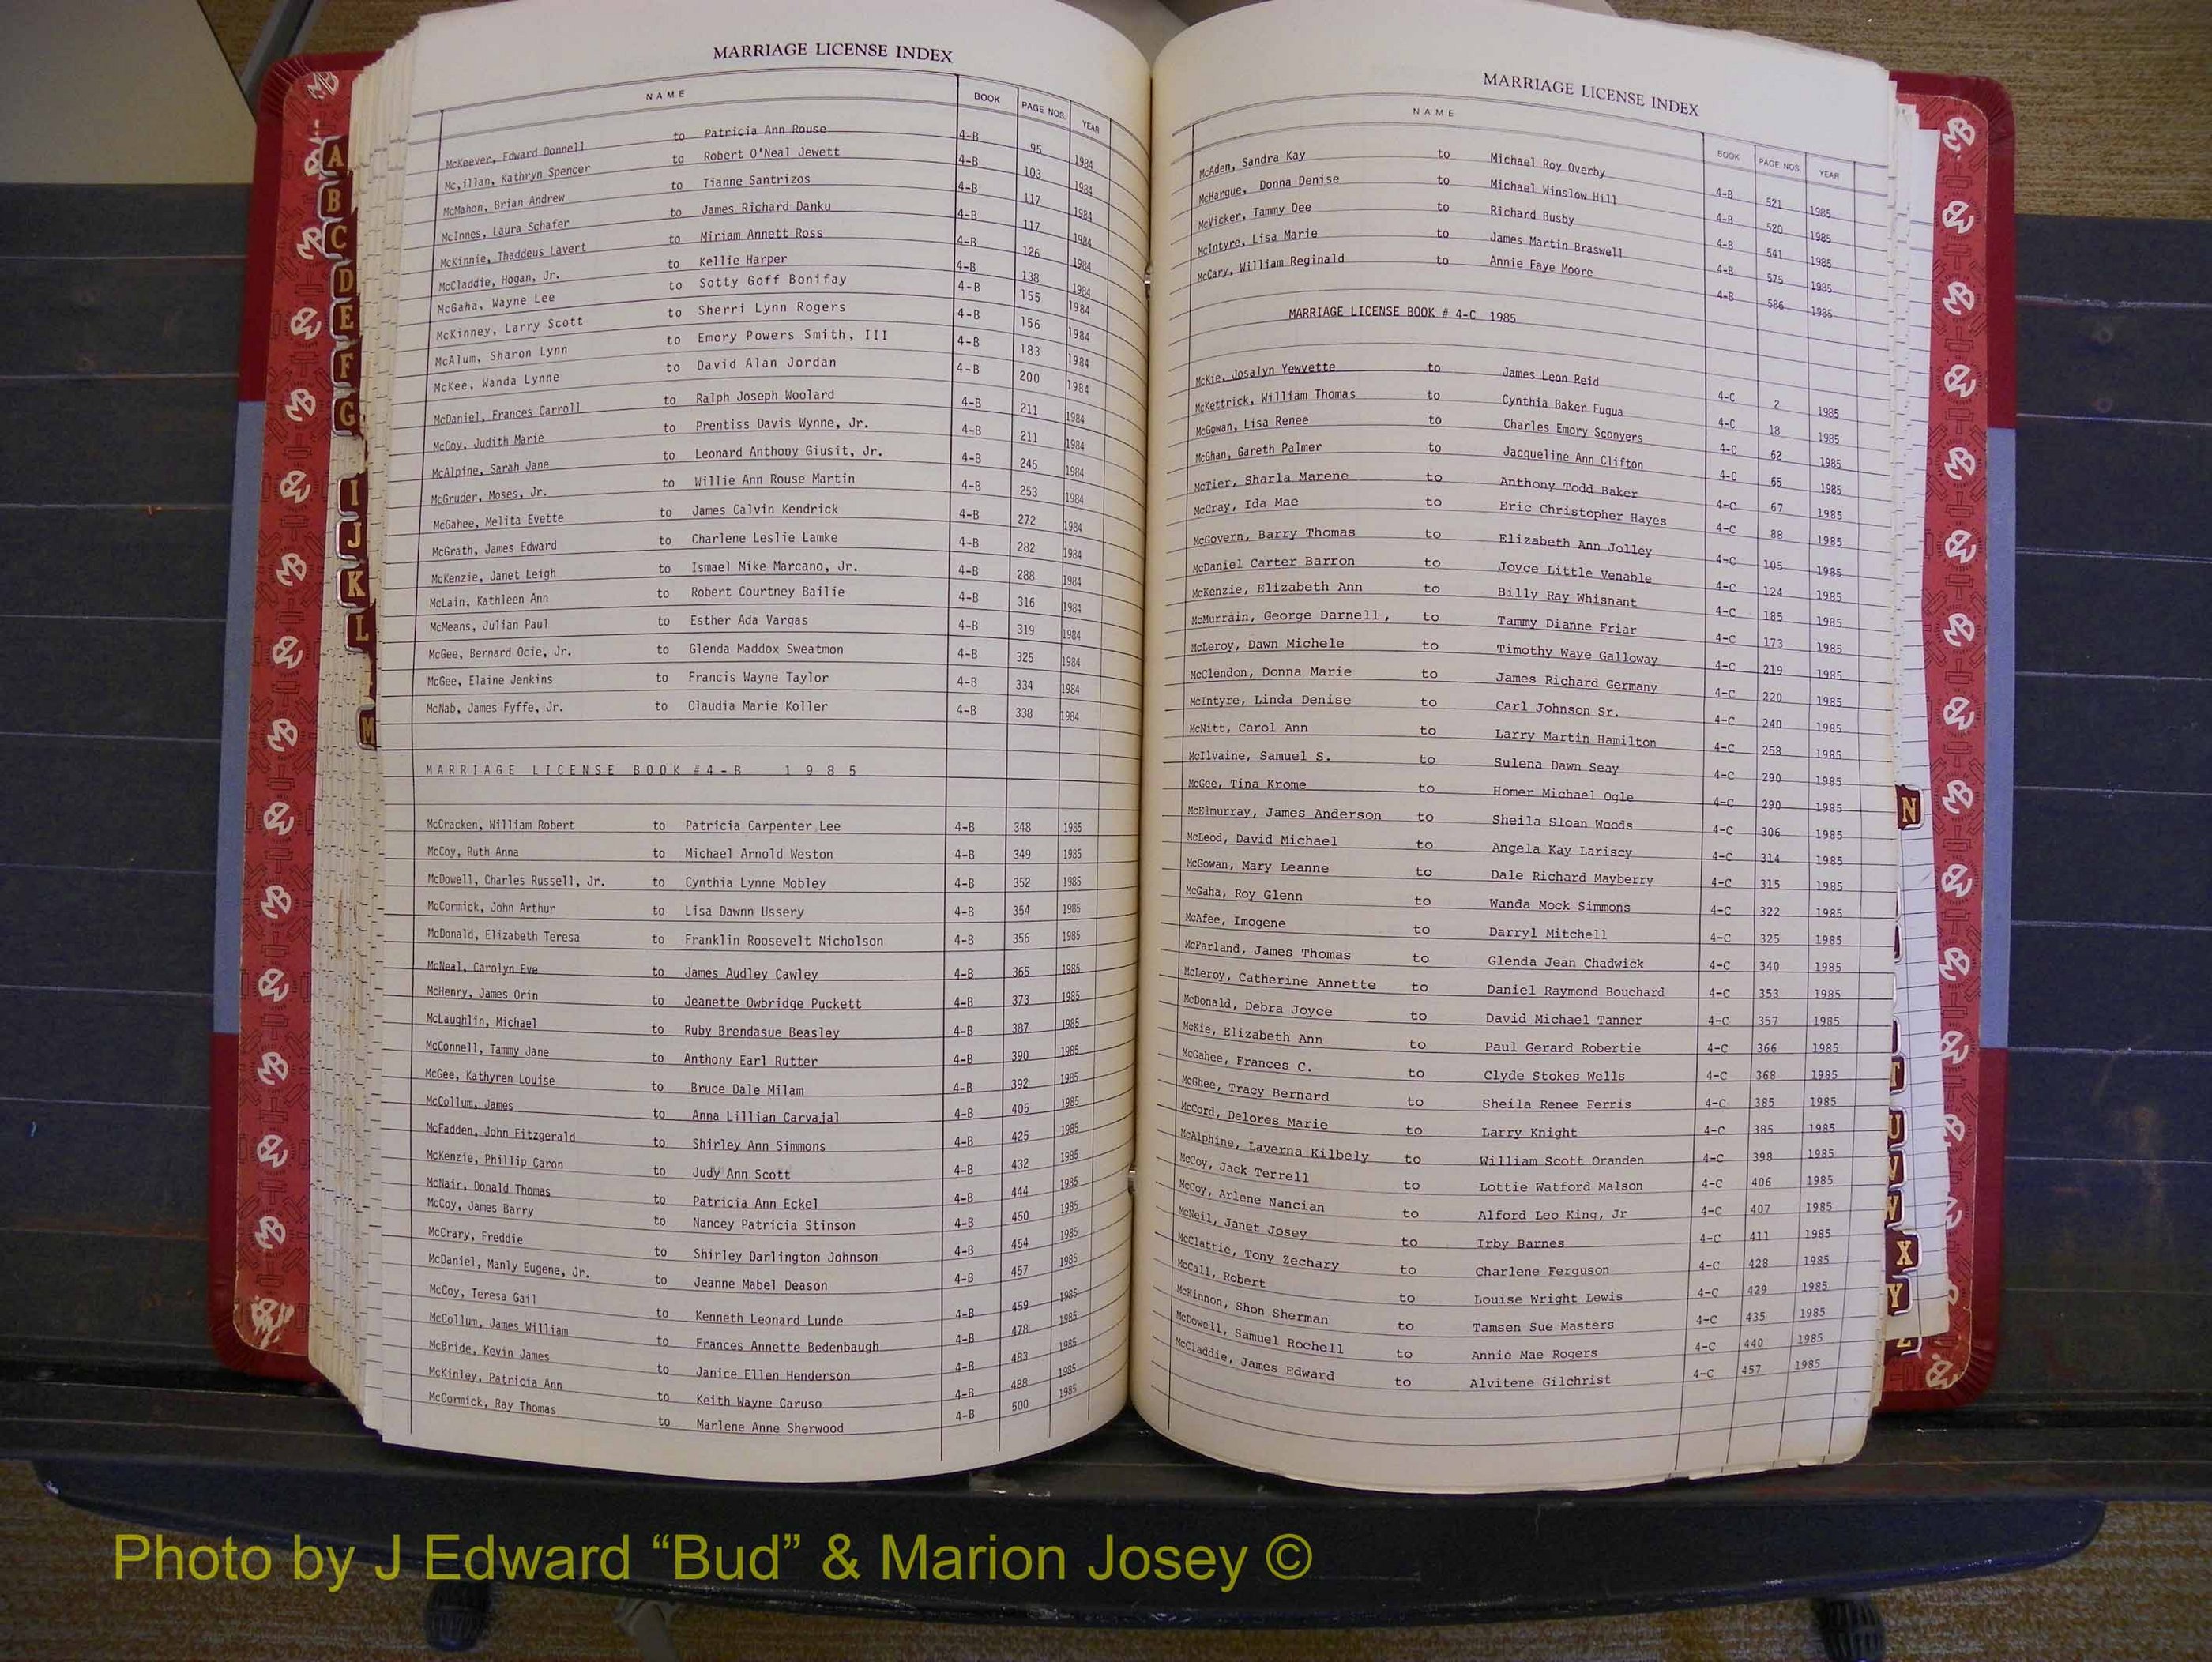 MARRIAGE LICENSE INDEX
NAME BOOK PAGE NOS. YEAR
McKeever, Edward Donnell to Patricia Ann Rouse 4-B 95 1984
Mc,illan, Kathryn Spencer to Robert O'Neal Jewett 4-B 103 1984
McMahon, Brian Andrew to Tianne Santrizos 4-B 117 1984
McInnes, Laura Schafer to James Richard Danku 4-B 117 1984
McKinnie, Thaddeus Lavert to Miriam Annett Ross 4-B 126 1984
McCladdie, Hogan, Jr. to Kellie Harper 4-B 138 1984
McGaha, Wayne Lee to Sotty Goff Bonifay 4-B 155 1984
McKinney, Larry Scott to Sherri Lynn Rogers 4-B 156 1984
McAlum, Sharon Lynn to Emory Powers Smith, III 4-B 183 1984
McKee, Wanda Lynne to David Alan Jordan 4-B 200 1984
McDaniel, Frances Carroll to Ralph Joseph Woolard 4-B 211 1984
McCoy, Judith Marie to Prentiss Davis Wynne, Jr. 4-B 211 1984
McAlpine, Sarah Jane to Leonard Anthony Giusit, Jr. 4-B 245 1984
McGruder, Moses, Jr. to Willie Ann Rouse Martin 4-B 253 1984
McGahee, Melita Evette to James Calvin Kendrick 4-B 272 1984
McGrath, James Edward to Charlene Leslie Lamke 4-B 282 1984
McKenzie, Janet Leigh to Ismael Mike Marcano, Jr. 4-B 288 1984
McLain, Kathleen Ann to Robert Courtney Bailie 4-B 316 1984
McMeans, Julian Paul to Esther Ada Vargas 4-B 319 1984
McGee, Bernard Ocie, Jr. to Glenda Maddox Sweatmon 4-B 325 1984
McGee, Elaine Jenkins to Francis Wayne Taylor 4-B 334 1984
McNab, James Fyffe, Jr. to Claudia Marie Koller 4-B 338 1984
MARRIAGE LICENSE BOOK #4-B 1985
McCracken, William Robert to Patricia Carpenter Lee 4-B 348 1985
McCoy, Ruth Anna to Michael Arnold Weston 4-B 349 1985
McDowell, Charles Russell, Jr. to Cynthia Lynne Mobley 4-B 352 1985
McCormick, John Arthur to Lisa Dawnn Ussery 4-B 354 1985
McDonald, Elizabeth Teresa to Franklin Roosevelt Nicholson 4-B 356 1985
McNeal, Carolyn Eve to James Audley Cawley 4-B 365 1985
McHenry, James Orin to Jeanette Owbridge Puckett 4-B 373 1985
McLaughlin, Michael to Ruby Brendasue Beasley 4-B 387 1985
McConnell, Tammy Jane to Anthony Earl Rutter 4-B 390 1985
McGee, Kathyren Louise to Bruce Dale Milam 4-B 392 1985
McCollum, James to Anna Lillian Carvajal 4-B 405 1985
McFadden, John Fitzgerald to Shirley Ann Simmons 4-B 425 1985
McKenzie, Phillip Caron to Judy Ann Scott 4-B 432 1985
McNair, Donald Thomas to Patricia Ann Eckel 4-B 444 1985
McCoy, James Barry to Nancey Patricia Stinson 4-B 450 1985
McCrary, Freddie to Shirley Darlington Johnson 4-B 454 1985
McDaniel, Manly Eugene, Jr. to Jeanne Mabel Deason 4-B 457 1985
McCoy, Teresa Gail to Kenneth Leonard Lunde 4-B 459 1985
McCollum, James William to Frances Annette Bedenbaugh 4-B 478 1985
McBride, Kevin James to Janice Ellen Henderson 4-B 483 1985
McKinley, Patricia Ann to Keith Wayne Caruso 4-B 488 1985
McCormick, Ray Thomas to Marlene Anne Sherwood 4-B 500 1985
MARRIAGE LICENSE INDEX
NAME BOOK PAGE NOS. YEAR
McAden, Sandra Kay to Michael Roy Overby 4-B 521 1985
McHargue, Donna Denise to Michael Winslow Hill 4-B 520 1985
McVicker, Tammy Dee to Richard Busby 4-B 541 1985
McIntyre, Lisa Marie to James Martin Braswell 4-B 575 1985
McCary, William Reginald to Annie Faye Moore 4-B 586 1985
MARRIAGE LICENSE BOOK # 4-C 1985
McKie, Josalyn Yewvette to James Leon Reid 4-C 2 1985
McKettrick, William Thomas to Cynthia Baker Fugua 4-C 18 1985
McGowan, Lisa Renee to Charles Emory Sconyers 4-C 62 1985
McGhan, Gareth Palmer to Jacqueline Ann Clifton 4-C 65 1985
McTier, Sharla Marene to Anthony Todd Baker 4-C 67 1985
McCray, Ida Mae to Eric Christopher Hayes 4-C 88 1985
McGovern, Barry Thomas to Elizabeth Ann Jolley 4-C 105 1985
McDaniel Carter Barron to Joyce Little Venable 4-C 124 1985
McKenzie, Elizabeth Ann to Billy Ray Whisnant 4-C 185 1985
McMurrain, George Darnell, to Tammy Dianne Friar 4-C 173 1985
McLeroy, Dawn Michele to Timothy Waye Galloway 4-C 219 1985
McClendon, Donna Marie to James Richard Germany 4-C 220 1985
McIntyre, Linda Denise to Carl Johnson Sr. 4-C 240 1985
McNitt, Carol Ann to Larry Martin Hamilton 4-C 258 1985
McIlvaine, Samuel S. to Sulena Dawn Seay 4-C 290 1985
McGee, Tina Krome to Homer Michael Ogle 4-C 290 1985
McElmurray, James Anderson to Sheila Sloan Woods 4-C 306 1985
McLeod, David Michael to Angela Kay Lariscy 4-C 314 1985
McGowan, Mary Leanne to Dale Richard Mayberry 4-C 315 1985
McGaha, Roy Glenn to Wanda Mock Simmons 4-C 322 1985
McAfee, Imogene to Darryl Mitchell 4-C 325 1985
McFarland, James Thomas to Glenda Jean Chadwick 4-C 340 1985
McLeroy, Catherine Annette to Daniel Raymond Bouchard 4-C 353 1985
McDonald, Debra Joyce to David Michael Tanner 4-C 357 1985
McKie, Elizabeth Ann to Paul Gerard Robertie 4-C 366 1985
McGahee, Frances C. to Clyde Stokes Wells 4-C 368 1985
McGhee, Tracy Bernard to Sheila Renee Ferris 4-C 385 1985
McCord, Delores Marie to Larry Knight 4-C 385 1985
McAlphine, Laverna Kilbely to William Scott Oranden 4-C 398 1985
McCoy, Jack Terrell to Lottie Watford Malson 4-C 406 1985
McCoy, Arlene Nancian to Alford Leo King, Jr 4-C 407 1985
McNeil, Janet Josey to Irby Barnes 4-C 411 1985
McClattie, Tony Zechary to Charlene Ferguson 4-C 428 1985
McCall, Robert to Louise Wright Lewis 4-C 429 1985
McKinnon, Shon Sherman to Tamsen Sue Masters 4-C 435 1985
McDowell, Samuel Rochell to Annie Mae Rogers 4-C 440 1985
McCladdie, James Edward to Alvitene Gilchrist 4-C 457 1985
A
B
C
D
E
F
G
I
J
K
L
M
N
T
U
V
W
X
Y
Z
Photo by J Edward “Bud” & Marion Josey ©